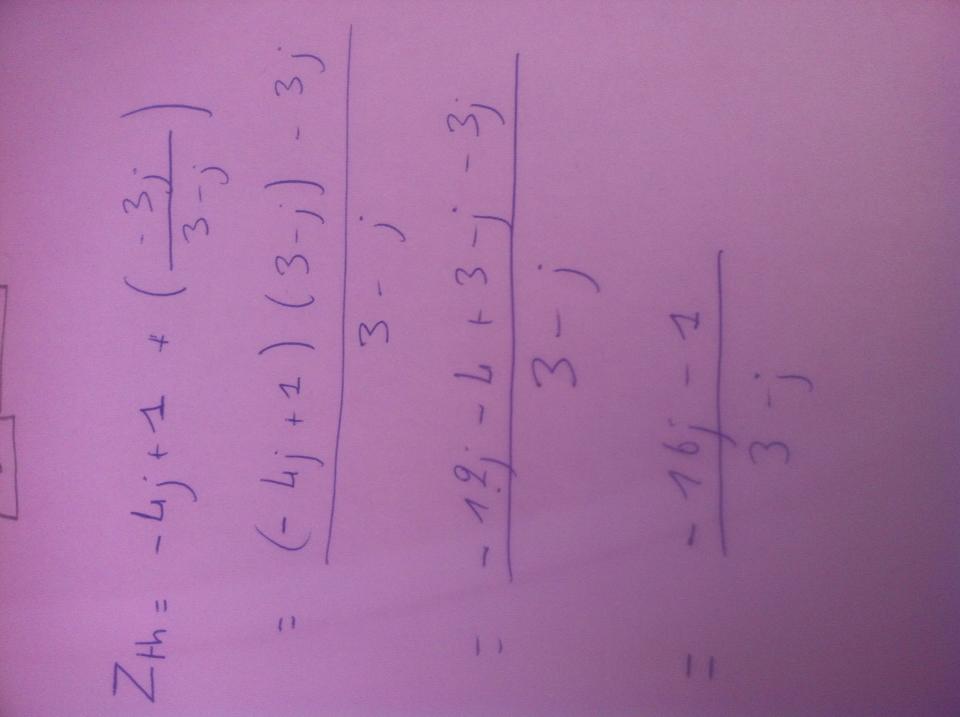 Zth = -4j + 1 + ( -3j / 3 - j )
= (-4j + 1) (3 - j) - 3j / 3 - j
= -12j - 4 + 3 - j - 3j / 3 - j
= -16j - 1 / 3 - j